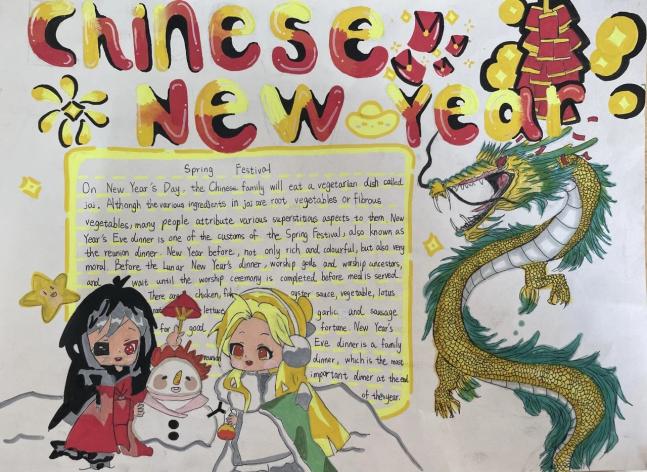 Chinese
New Year
Spring Festival
On New Year's Day, the Chinese family will eat a vegetarian dish called
jai. Although the various ingredients in jai are root vegetables or fibrous
vegetables, many people attribute various superstitious aspects to them. New
Year's Eve dinner is one of the customs of the Spring Festival, also known as
the reunion dinner. New Year before, not only rich and colourful, but also very
moral. Before the Lunar New Year's dinner, worship gods and worship ancestors,
and wait until the worship ceremony is completed before meal is served.
There are chicken, fish oyster sauce, vegetable, lotus
lettuce garlic and sausage
for good fortune. New Year's
Eve dinner is a family
dinner, which is the most
important dinner at the end
of the year.